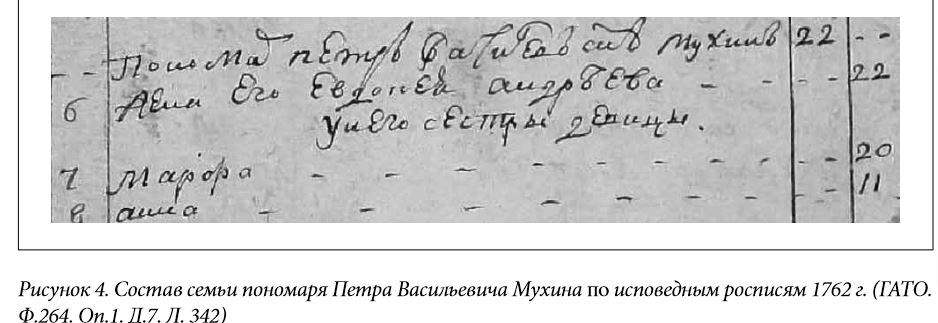 - - Пономаръ петръ василевъ снъ мухинъ 22 - -
6 жена Его Евдокея андрѣева - - - - 22
у него сестры девицы.
7 Марфа - - - - - - - - 20
8 анна - - - - - - - - 11
Рисунок 4. Состав семьи пономаря Петра Васильевича Мухина по исповедным росписям 1762 г. (ГАТО.
Ф.264. Оп.1. Д.7. Л. 342)